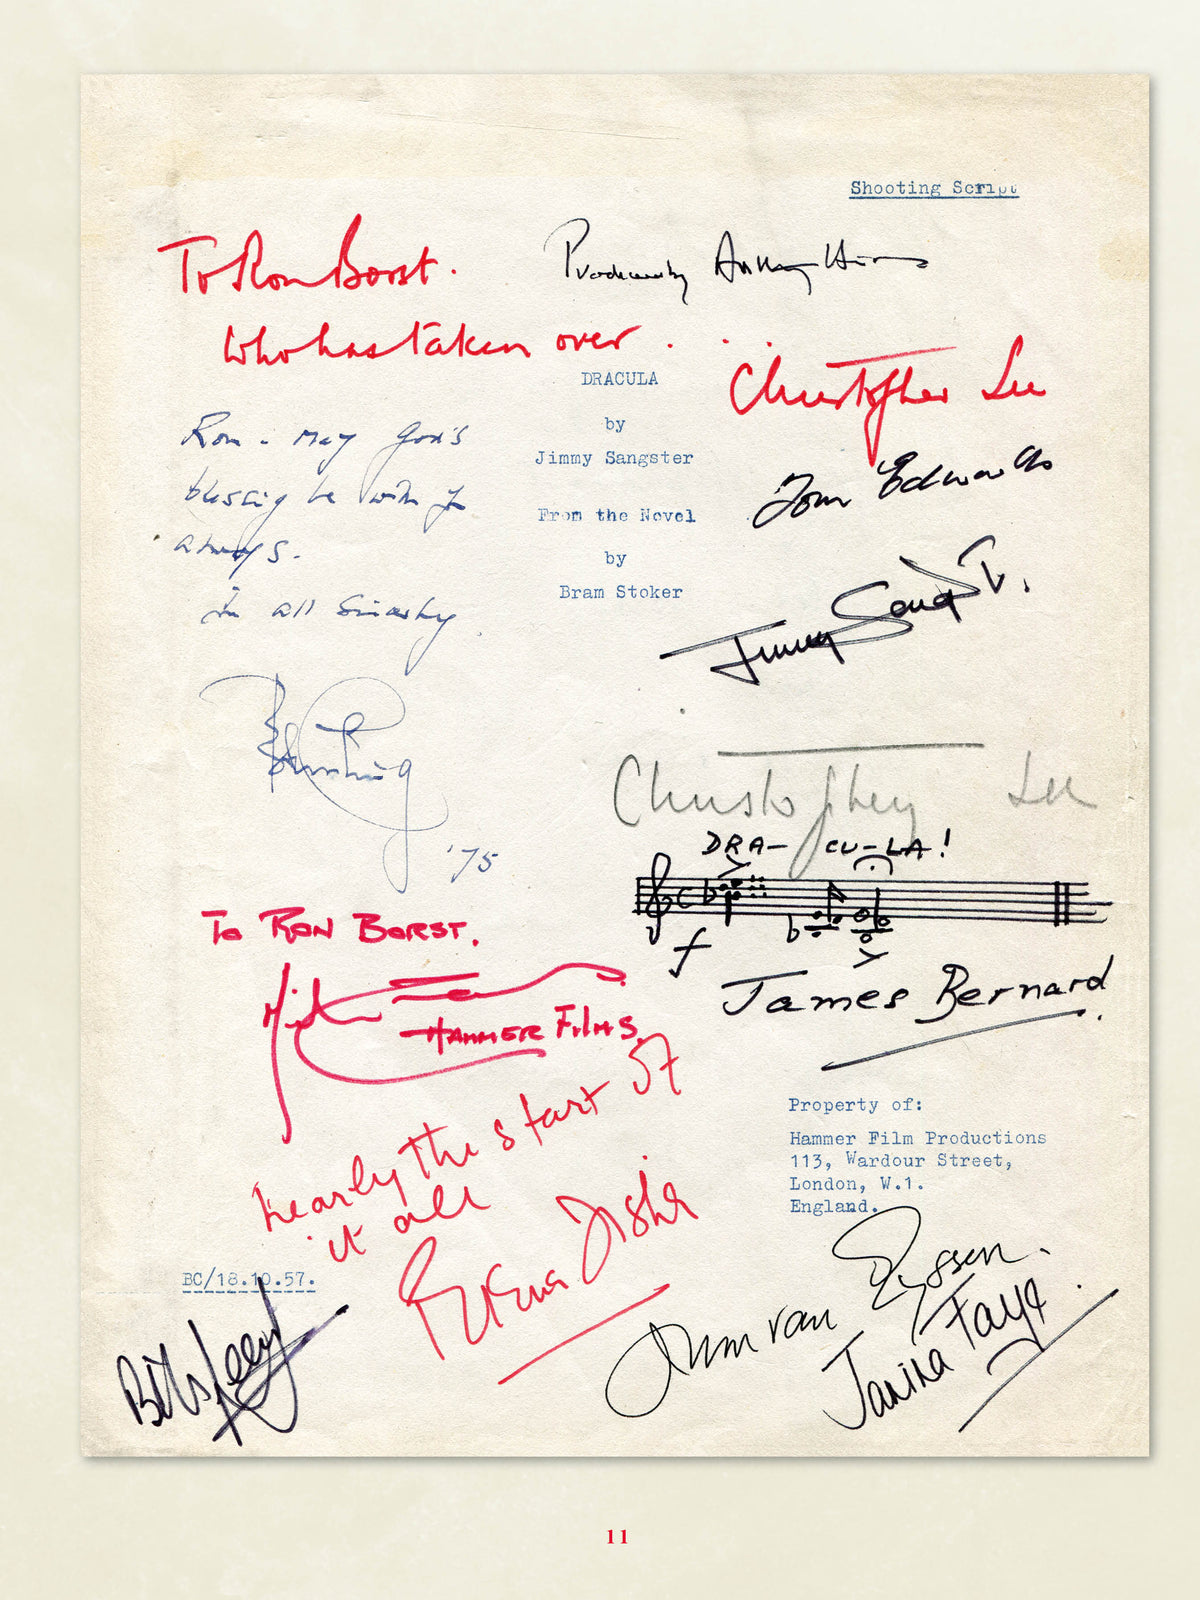 Shooting Script
To Ron Borst.
Produced by Anthony Hinds
Who has taken over . . .
Christopher Lee
DRACULA
by
Jimmy Sangster
From the Novel
by
Bram Stoker
Ron - May God's
blessing be with you
always.
In all sincerity
'75
Tom Edwards
Jimmy Sangster.
Christopher Lee
DRA- CU-LA!
f
James Bernard.
TO RON BORST.
HAMMER FILMS.
nearly the start of
it all
Terence Fisher
Property of:
Hammer Film Productions
113, Wardour Street,
London, W.1.
England.
BC/18.10.57.
John van Eyssen.
Janina Faye.
11